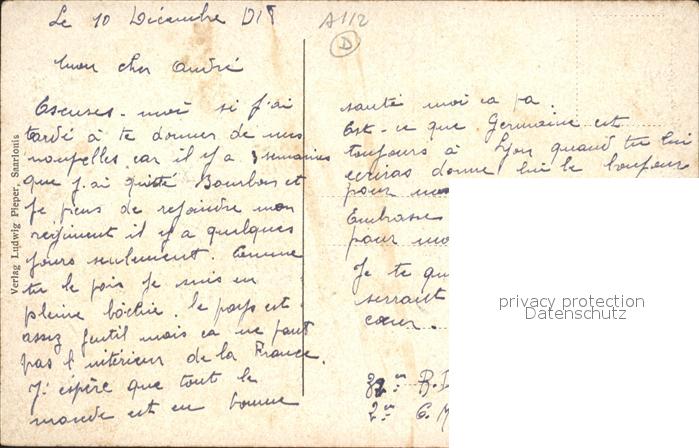 Le 10 Décembre 1918
A112
D
Mon cher André
Escuses-moi si j'ai
tardé à te donner de mes
nouvelles car il y a 3 semaines
que j'ai quitté Bourbon et
je viens de rejoindre mon
régiment il y a quelques
jours seulement. Comme
tu le vois je suis en
pleine bochie. le pays est
assez gentil mais ca ne vaut
pas l'intérieur de la France.
J'espère que tout le
monde est en bonne
santé moi ca va.
Est-ce que Germaine est
toujours à Lyon quand tu lui
ecriras donne lui le bonjour
pour
Embrasse
pour mo
Je te qu
serrant
cœur.
32
2
Verlag Ludwig Pieper, Saarlouis
privacy protection
Datenschutz